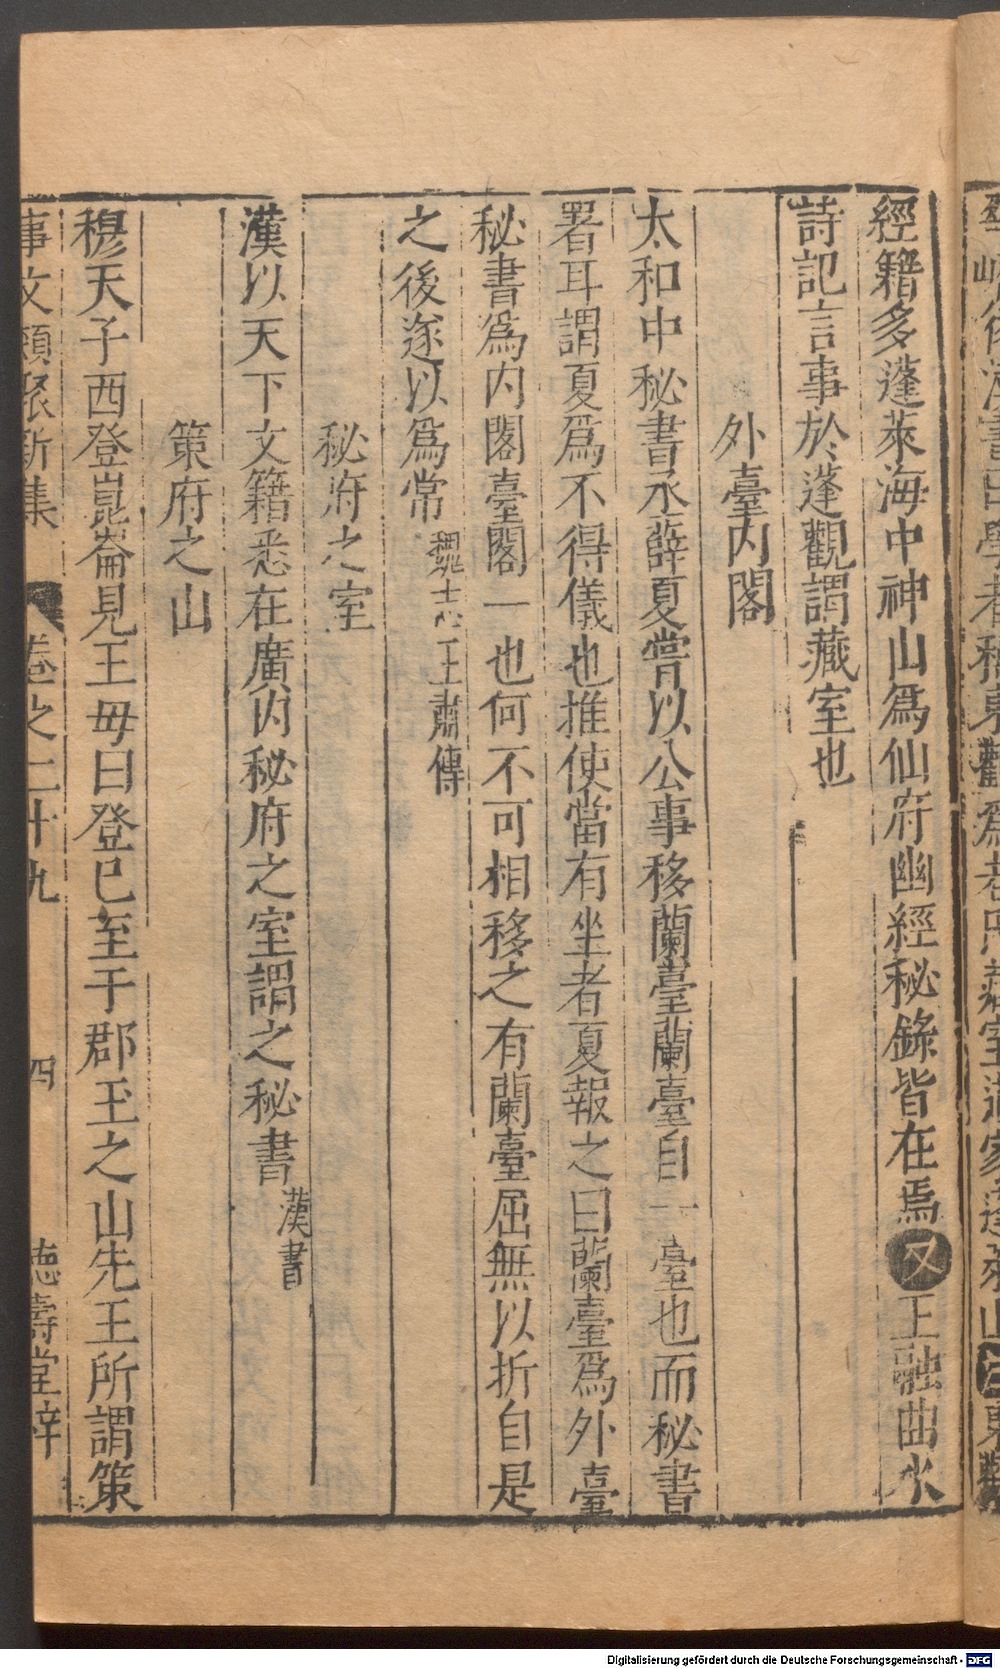 經籍多蓬萊海中神山爲仙府幽經秘錄皆在焉又王融曲水
詩記言事於蓬觀謂藏室也
外臺内閣
太和中秘書丞薛夏嘗以公事移蘭臺蘭臺自一臺也而秘書
署耳謂夏爲不得儀也推使當有坐者夏報之曰蘭臺爲外臺
秘書爲内閣臺閣一也何不可相移之有蘭臺屈無以折自是
之後遂以爲常魏志王肅傳
秘府之室
漢以天下文籍悉在廣内秘府之室謂之秘書漢書
策府之山
穆天子西登崑崙見王毋曰登巳至于郡玉之山先王所謂策
事文類聚新集 卷之二十九 四 德壽堂梓
Digitalisierung gefördert durch die Deutsche Forschungsgemeinschaft - DFG